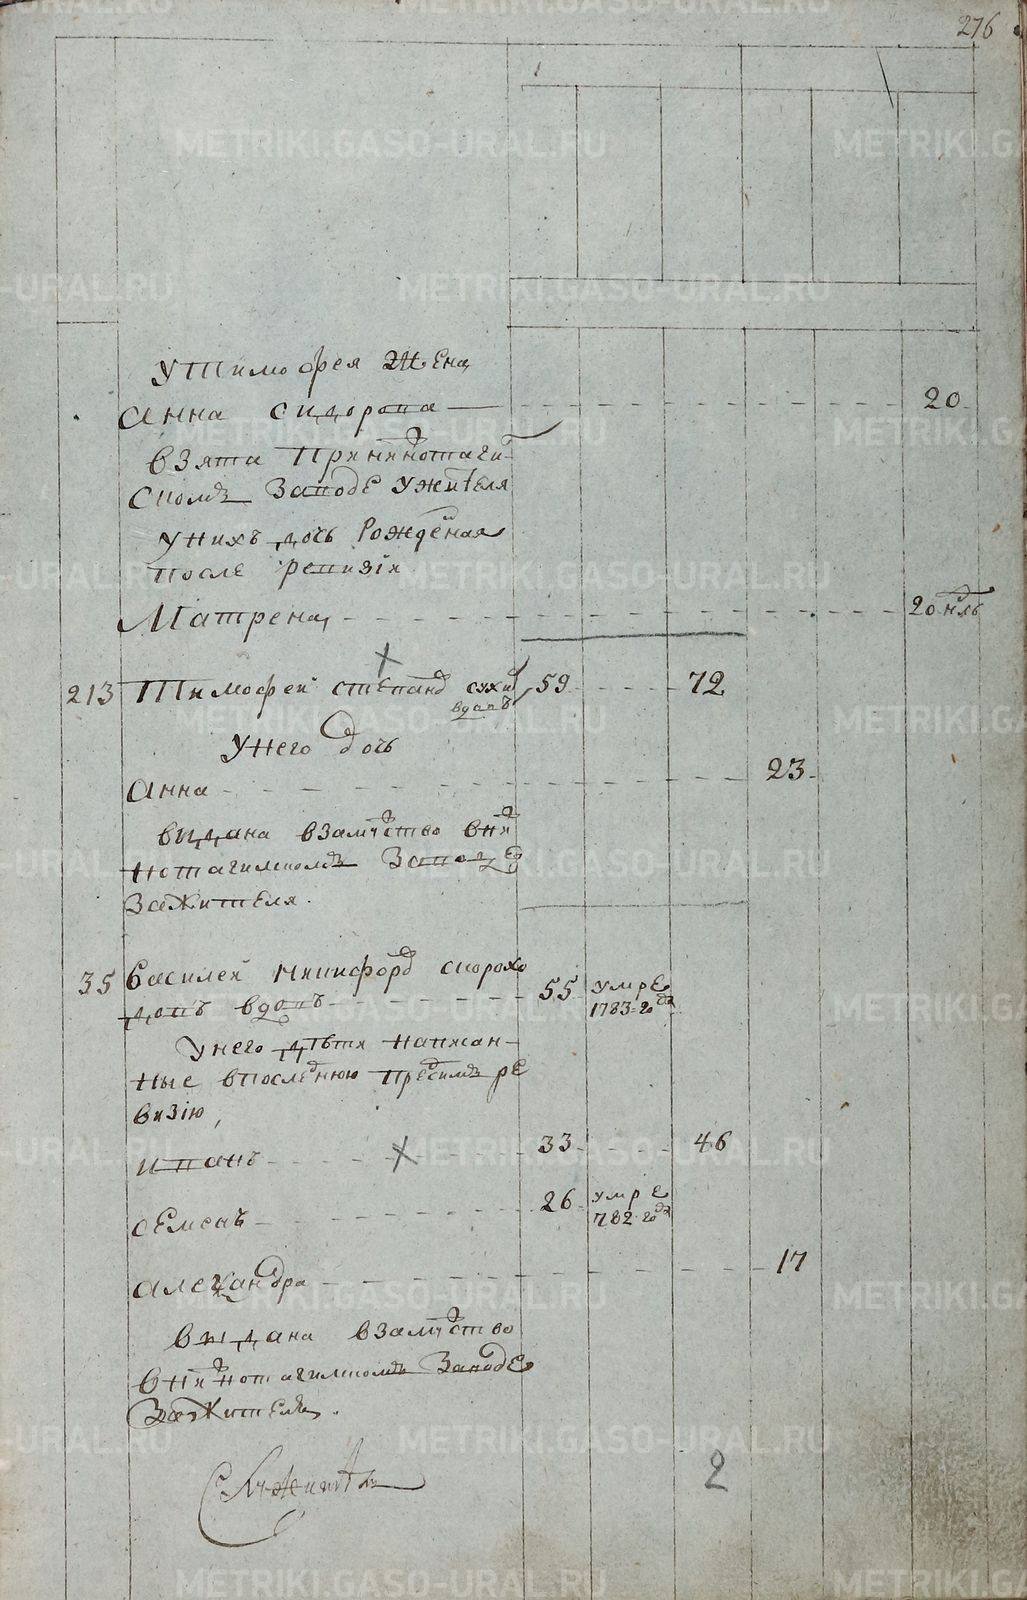 276
у Тимофея жена
Анна Сидорова 20
взята при нижнотаги
ском заводе у жителя
у них дочь рожденая
после ревизiи
Матрена 20 нль
213 Тимофей Степанов Сухи 59 72
вдовъ
у него дочь
Анна 23
выдана в замужство в ни
жнотагилском заводе
за жителя.
35 Василей Никифоров Скорохо
довъ вдовъ 55 умре 1783 году
у него дѣти написан
ные в последнюю пред сим ре
визiю,
Иванъ 33 46
Семенъ 26 умре 782 году
Александра 17
выдана в замужство
в нижнотагилском заводе
за жителя.
2
METRIKI.GASO-URAL.RU